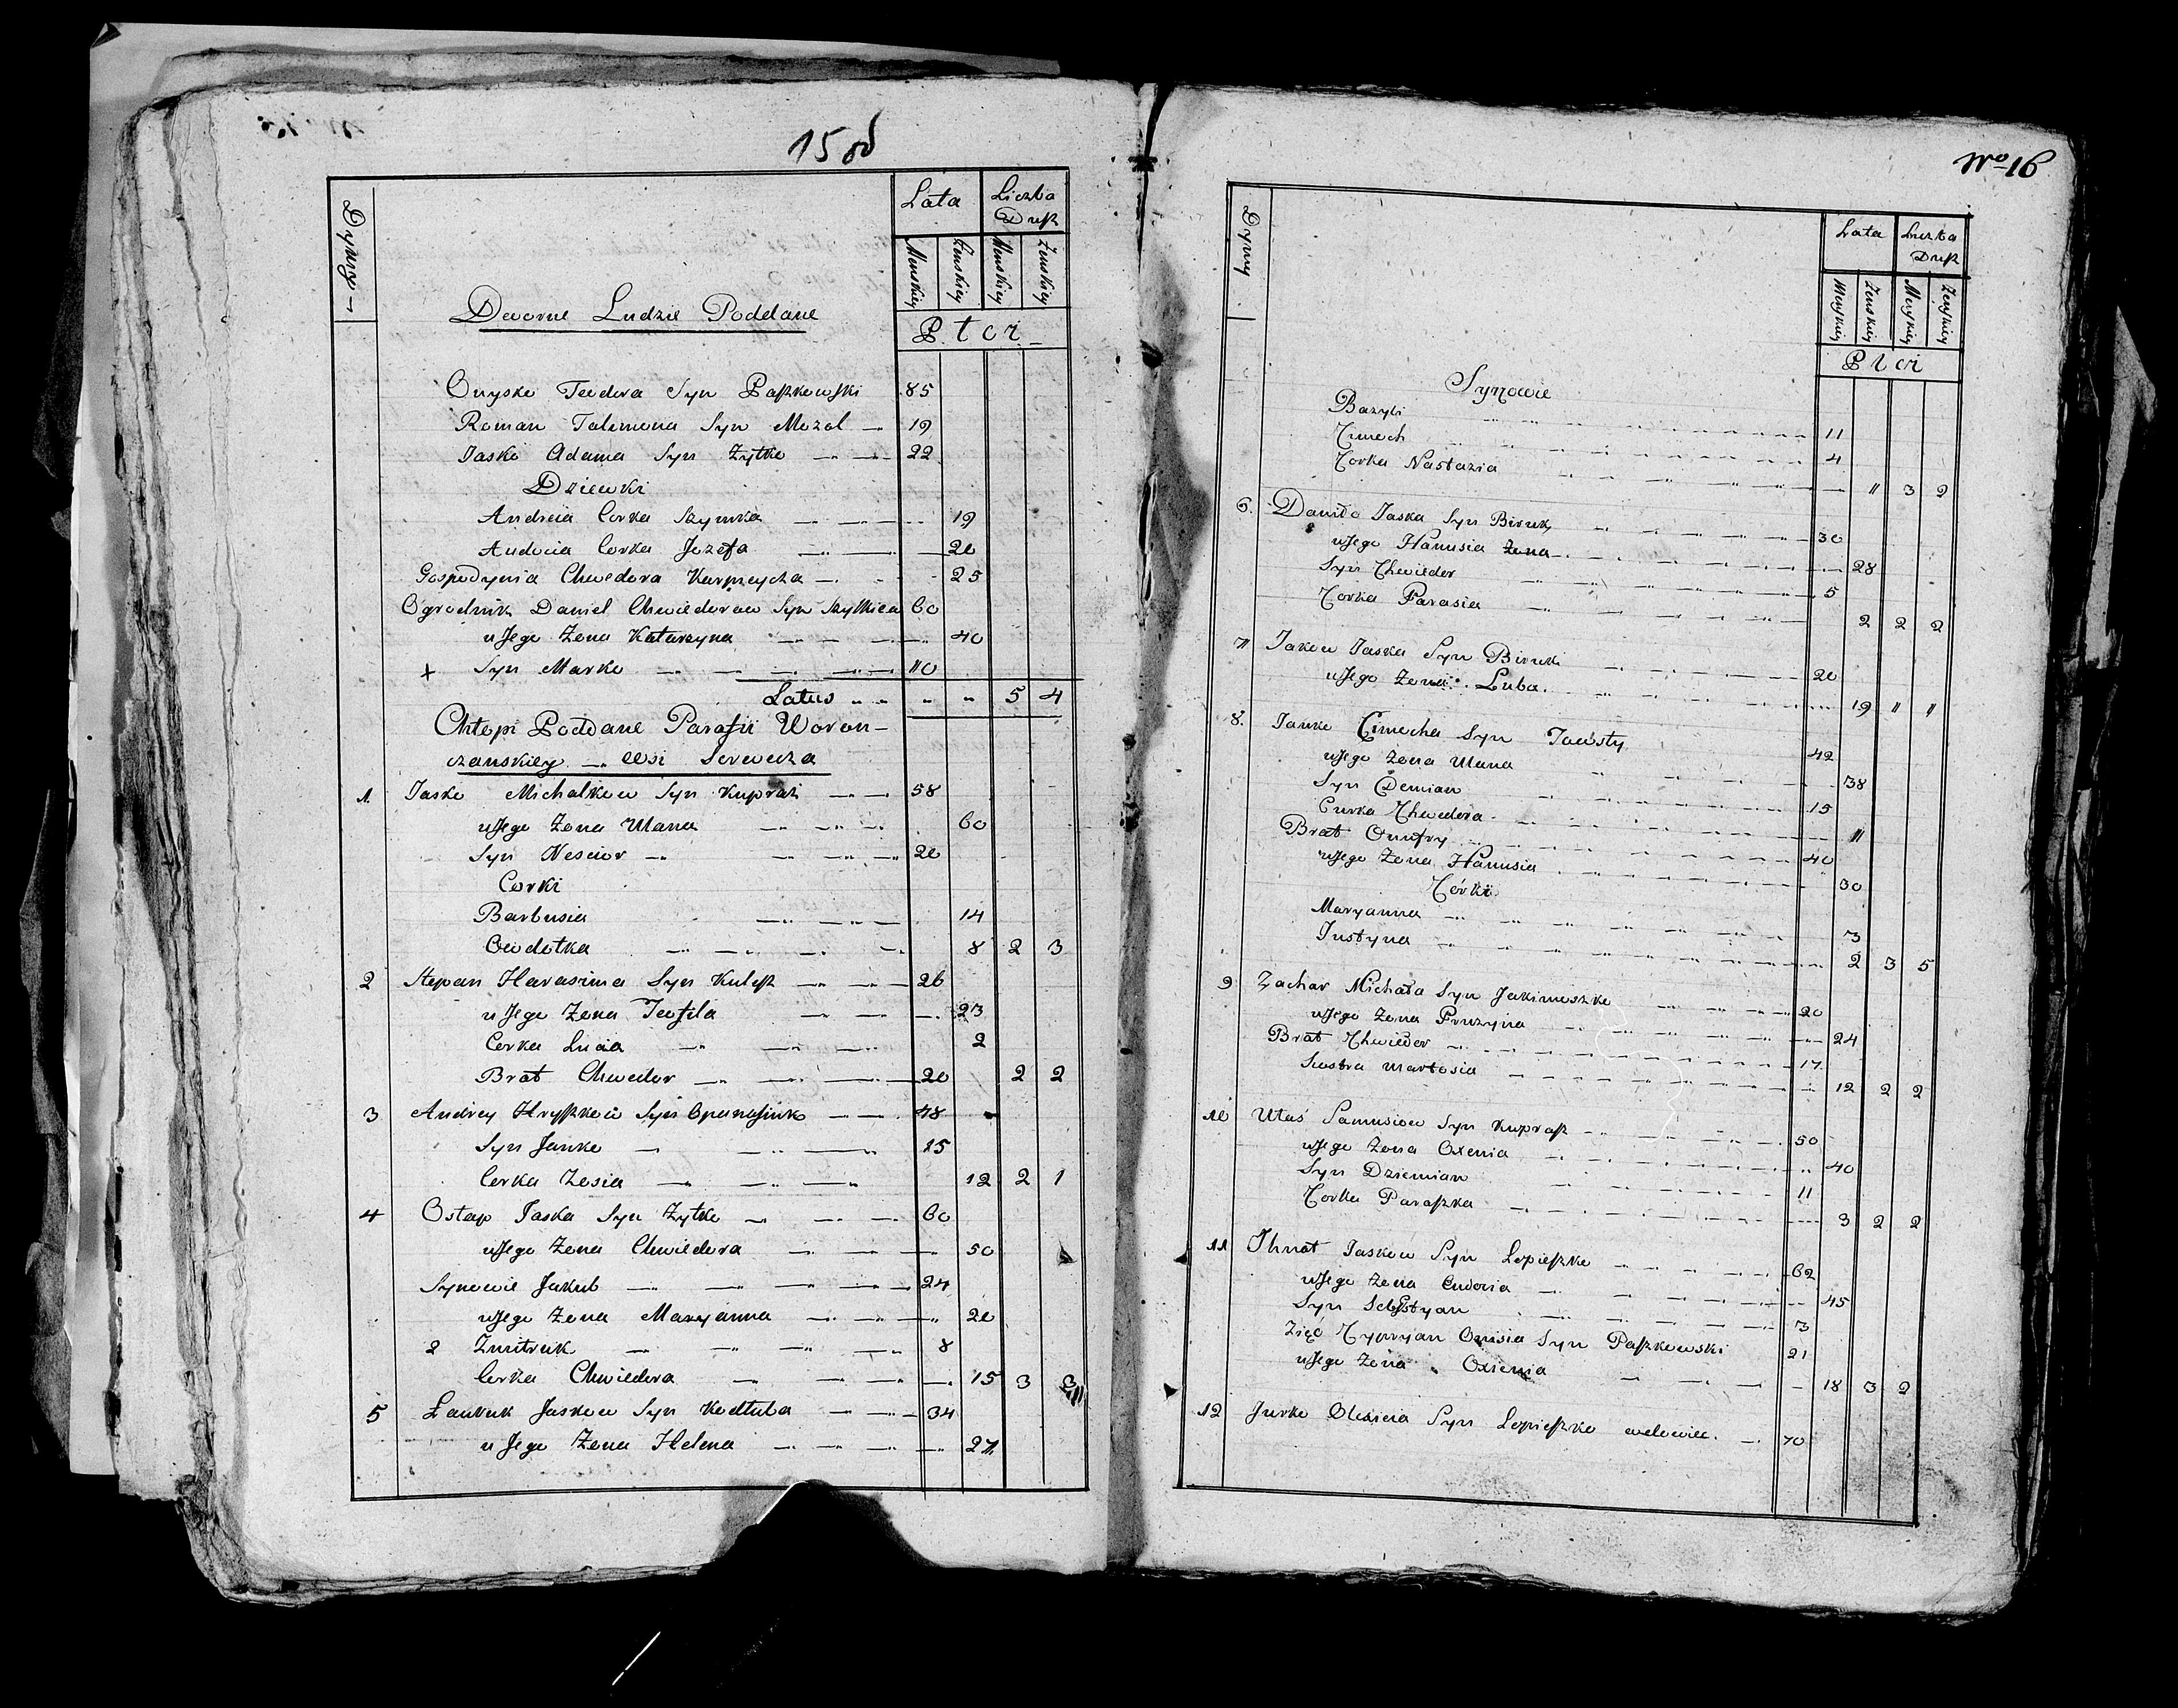 15 od
Dymy
Lata Liczba Dusz
Męuskiey Żenskiey Męuskiey Żenskiey
Płci
Dworne Ludzie Poddane
Onysko Teodora Syn Paszkowski 85
Roman Talemona Syn Mozol 19
Jasko Adama Syn Zytko 22
Dziewki
Andreia Corka Szymka 19
Audocia Corka Jozefa 20
Gospodynia Chwedora Karpieycha 25
Ogrodnik Daniel Chwiedorow Syn 60
u Jego Zona Katarzyna 40
+ Syn Marko 10
Latus " " 5 4
Chłopi Poddane Parafii Woron-
czanskiey Wsi Serwecza
1 Jasko Michalkow Syn Kuprasz 58
u Jego Zona Ulana 60
Syn Nescior 20
Corki
Barbusia 14
Owdotka 8 2 3
2 Stepan Harasima Syn Kulesz 26
u Jego Zona Teofila 23
Corka Lucia 2
Brat Chwedor 20 2 2
3 Andrey Hryszkow Syn Opanasiuk 48
Syn Janko 15
Corka Zosia 12 2 1
4 Ostap Jaska Syn Zytko 60
u Jego Zona Chwiedora 50
Synowie Jakub 24
u Jego Zona Maryanna 20
2 Zmitruk 8
Corka Chwiedora 15 3 3
5 Ławruk Jaskow Syn Kodłuba 34
u Jego Zona Helena 27
No 16
Dymy
Lata Liczba Dusz
Męskiey Żenskiey Męskiey Żenskiey
Płci
Synowie
Bazyli 11
Cimoch 4
Corka Nastazia " 3 2
6. Daniło Jaska Syn Biruk 30
u Jego Hanusia Zona 28
Syn Chwiedor 5
Corka Parasia 2 2 2
7 Jakow Jaska Syn Biruk 20
u Jego Zona Luba 19 " "
8. Janko Cimocha Syn Towsty 42
u Jego Zona Ulana 38
Syn Demian 15
Curka Chwedora 11
Brat Onufry 40
u Jego Zona Hanusia 30
Córki
Maryanna 3
Justyna 2 3 5
9 Zachar Michała Syn Jakimoszko 20
u Jego Zona Pruzyna 24
Brat Chwiedor 17
Siostra Martosia 12 2 2
10 Ułaś Samusiow Syn Kuprasz 50
u Jego Zona Oxenia 40
Syn Dziemian 11
Corka Paraszka 3 2 2
11 Ihnat Jaskow Syn Lopieszko 62
u Jego Zona Eudocia 45
Syn Sebestyan 3
Zięć Cypryjan Onisia Syn Paszkowski 21
u Jego Zona Oxienia 18 3 2
12 Jurko Olexieia Syn Lopieszko wdowiec 70